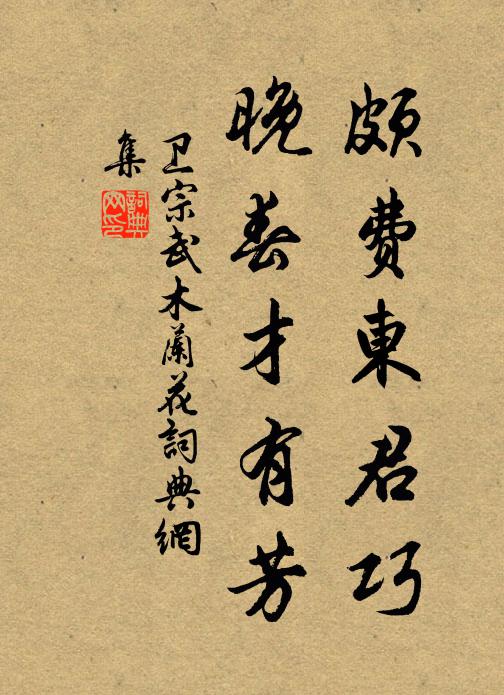 頗費東君巧
晚春才有芳
卫宗武木蘭花詞典網
集
詞典
网印